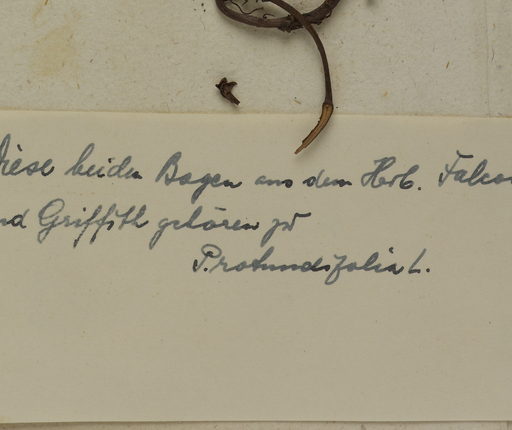 Diese beiden Bogen aus dem Herb. Falcon
nd Griffith gehören zu
P. rotundifolia L.